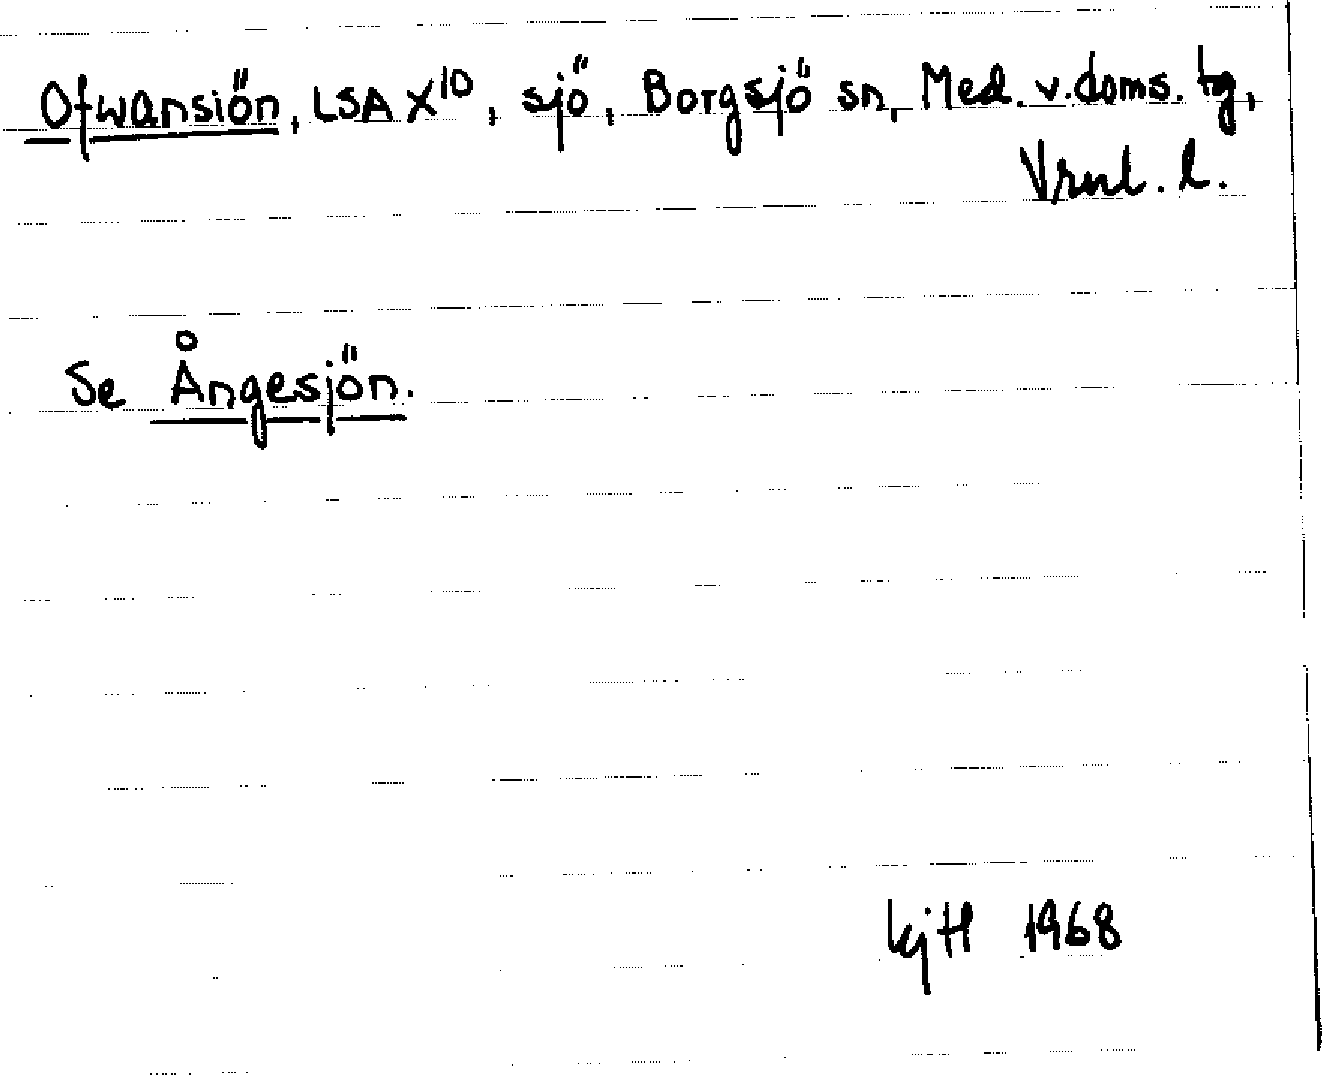 Ofwansiön, LSA X10, sjö, Borgsjö sn, Med. v. doms. tg,
Vrnl. l.
Se Ångesjön.
KjH 1968